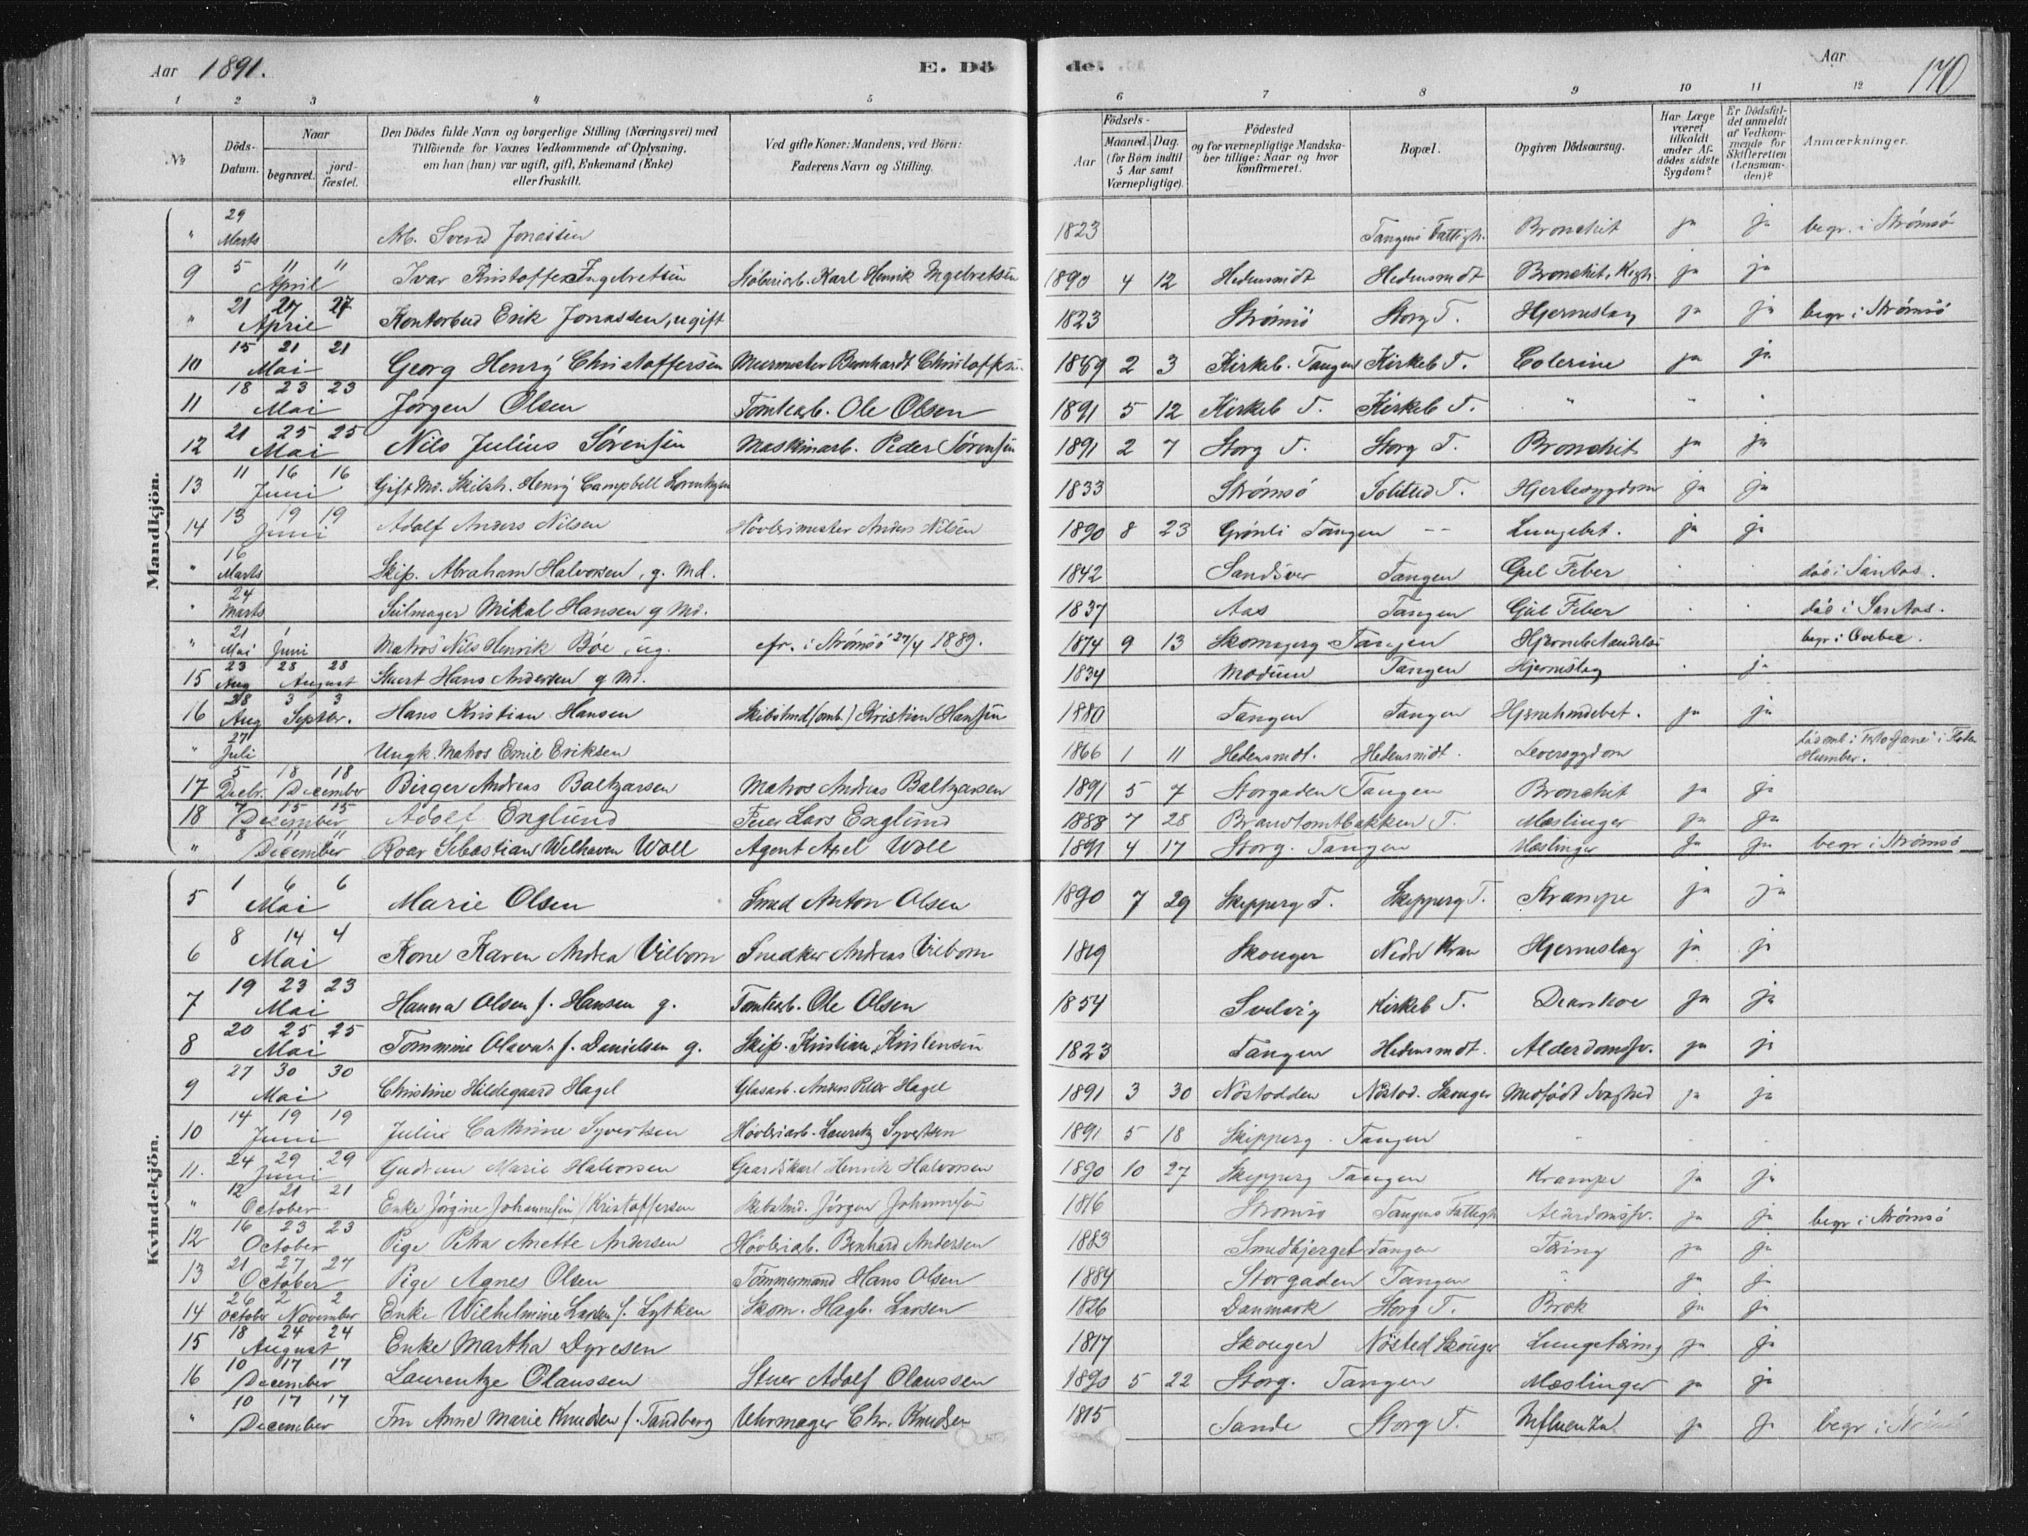 Aar 1891. E. Dö de. Aar 170
1 2 3 4 5 6 7 8 9 10 11 12
No Döds-Datum. Naar begravet. jord-fæstet. Den Dödes fulde Navn og borgerlige Stilling (Næringsvei) med Tilföiende for Voxnes Vedkommende af Oplysning, om han (hun) var ugift, gift, Enkemand (Enke) eller fraskilt. Ved gifte Koner: Mandens, ved Börn: Faderens Navn og Stilling. Födsels- Aar Maaned. Dag. (for Börn indtil 5 Aar samt Værnepligtige). Födested og for værnepligtige Mandskaber tillige: Naar og hvor konfirmeret. Bopæl. Opgiven Dödsaarsag. Har Læge været tilkaldt under Afdödes sidste Sygdom? Er Dödsfaldet anmeldt af Vedkommende for Skifteretten (Lensmanden)? Anmærkninger.
Mandkjön.
" 29 Marts Svend Jonassen 1823 Tangens Fattigh. Bronchit ja ja begr. i Strømsø
9 5 April " " Ivar Kristoffer Ingebretsen Karl Henrik Ingebretsen 1890 4 12 Hedensmidt Hedensmidt Bronchit. ja ja
" 21 27 27 April Kontorbud Erik Jonassen, ugift 1823 Strømsö Storg T. Hjerneslag ja ja begr i Strømsö
10 15 21 21 Mai Georg Henry Christoffersen Murmester Bernhardt Christoffersen 1889 2 3 Kirkeb. Tangen Kirkeb T. Colerine ja ja
11 18 23 23 Mai Jörgen Olsen Tomtearb. Ole Olsen 1891 5 12 Kirkeb T. Kirkeb T. " " "
12 21 25 25 Mai Nils Julius Sørensen Maskinarb. Peder Sørensen 1891 2 7 Storg T. Storg T. Bronchit ja ja
13 11 16 16 Juni Gift Md. Henry Campbell Lorentzen 1833 Strømsö T. Hjertesygdom ja ja
14 13 19 19 Juni Adolf Anders Nilsen Høvlerimester Anders Nilsen 1890 8 23 Grønli Tangen - - Lungebet. ja ja
" 16 Marts Skip. Abraham Halvorsen, g. Md. 1842 Sandsver Tangen Gul Feber død i Santos.
" 24 Marts Seilmager Mikal Hansen g Md. 1837 Aas Tangen Gul Feber død i Santos.
" 21 Mai Juni Matros Nils Henrik Bøe, ug. cfr. i Strømsö 27/4 1889. 1874 9 13 Skomagerg Tangen begr i Qvebec.
15 23 28 28 Aug August Stuert Hans Andersen g Md. 1834 Modum Tangen Hjerneslag ja
16 28 3 3 Aug Septbr. Hans Kristian Hansen Skibstmd (omb.) Kristian Hansen 1880 Tangen Tangen Hjernehindebet. ja ja
" 27 Juli Ungk. Matros Emil Eriksen 1866 1 11 Hedensmdt. Hedensmidt. Leversygdom Humber.
17 5 18 18 Decbr. December Birger Andreas Baltzarsen Matros Andreas Baltzarsen 1891 5 7 Storgaden Tangen Bronchit ja ja
18 7 15 15 December Adolf Englund Lars Englund 1888 7 28 Brandtomtbakken T. Mæslinger ja ja
" 8 " " December Roar Sebastian Welhaven Woll Agent Axel Woll 1891 4 17 Storg. Tangen Mæslinger Ja Ja begr i Strømsö
Kvindekjön.
5 1 6 6 Mai Marie Olsen Smed Anton Olsen 1890 7 29 Skipperg T. Skipperg T. Krampe ja ja
6 8 14 4 Mai Kone Karen Andrea Vilborn Snedker Andreas Vilborn 1819 Skouger Nedre Kran Hjerneslag ja ja
7 19 23 23 Mai Hanna Olsen f. Hansen g. Tomtearb. Ole Olsen 1854 Svelvig Kirkeb T. ja ja
8 20 25 25 Mai Tommine f. Danielsen g. Skip. Kristian Kristensen 1823 Tangen Hedensmdt. Alderdomssv. ja ja
9 27 30 30 Mai Christine Hildegaard Hagel Glasarb. Anders Peter Hagel 1891 3 30 Nöstodden Nöstod. Skouger Medfødt Svaghed ja ja
10 14 19 19 Juni Julie Cathrine Syvertsen Høvleriarb. Lauritz Syvertsen 1891 5 18 Skipperg. Tangen
11. 24 29 29 Juni Gudrun Marie Halvorsen Gaardskarl Henrik Halvorsen 1890 10 27 Skipperg Tangen Krampe ja ja
" 12 21 21 October Enke Jörgine Johannesen f Kristoffersen Skibstmd. Jörgen Johannesen 1816 Strømsö Tangens Fattigh Alderdomssv. ja ja begr i Strømsö
12 16 23 23 October Pige Petra Anette Andersen Høvleriarb. Bernhard Andersen 1883 Smedbjerget Tangen Tæring ja ja
13 21 27 27 October Pige Agnes Olsen Tömmermand Hans Olsen 1884 Storgaden Tangen " ja ja
14 26 2 2 October November Enke Wilhelmine Larsen f. Lytken Skom. Hagb. Larsen 1826 Danmark Storg T. Brok ja ja
15 18 24 24 August Enke Martha Dyresen 1817 Skouger Nösted Skouger Lungetæring ja ja
16 10 17 17 December Laurentze Olaussen Stuer Adolf Olaussen 1890 5 22 Storg. Tangen Mæslinger ja ja
" 10 17 17 December Fru Anne Marie Knudsen f. Tandberg Uhrmager Chr. Knudsen 1815 Sande Storg T. Influenza ja ja begr i Strømsö